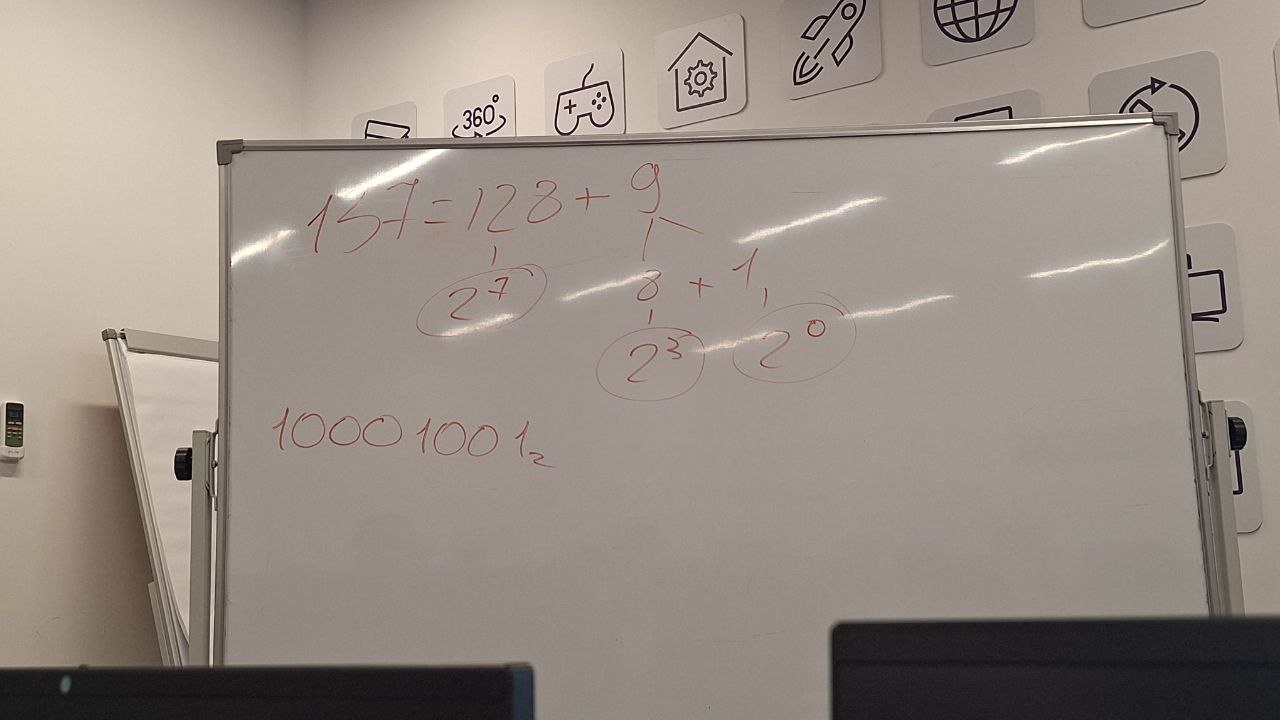 360°
137=128+9
2⁷
8+1
2³ 2⁰
10001001₂